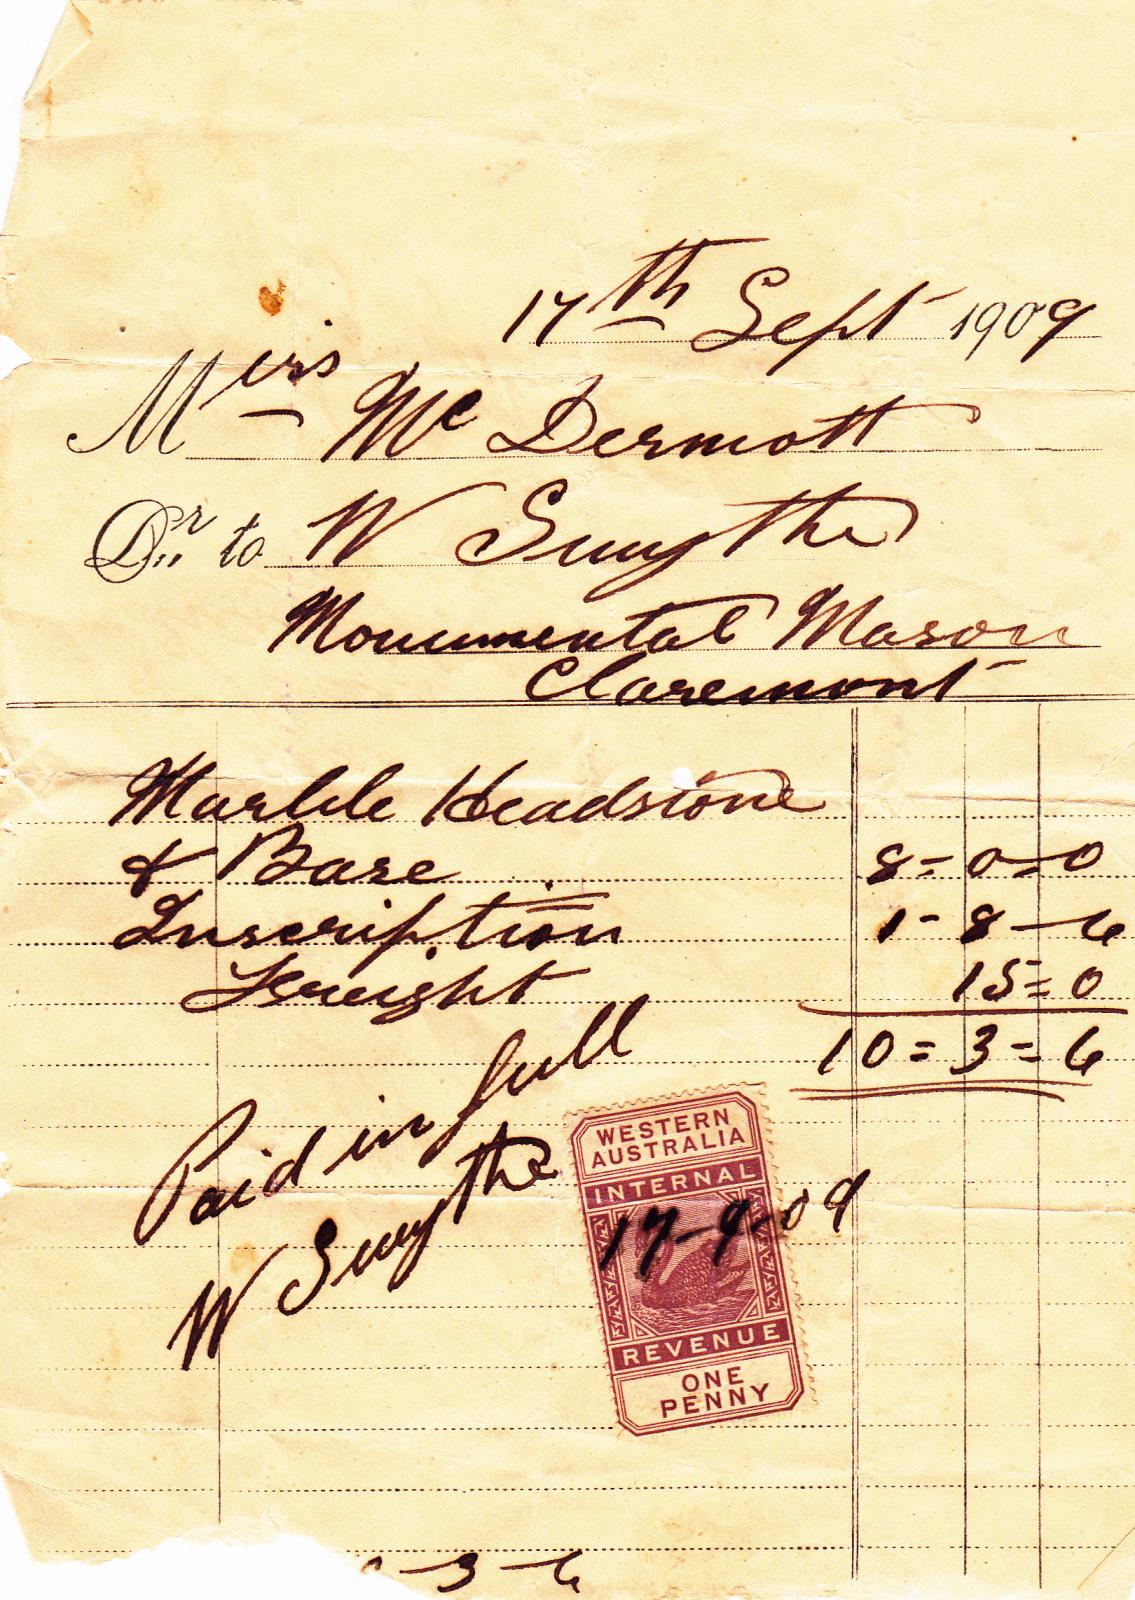 17th Sept 1909
Miss McDermott
Dr. to W Smythe
Monumental Mason
Claremont
Marble Headstone
& Base 8=0=0
Inscription 1-8-6
Freight 15=0
10=3=6
Paid in full
W Smythe
WESTERN
AUSTRALIA
INTERNAL
17-9-09
REVENUE
ONE
PENNY
-3-6